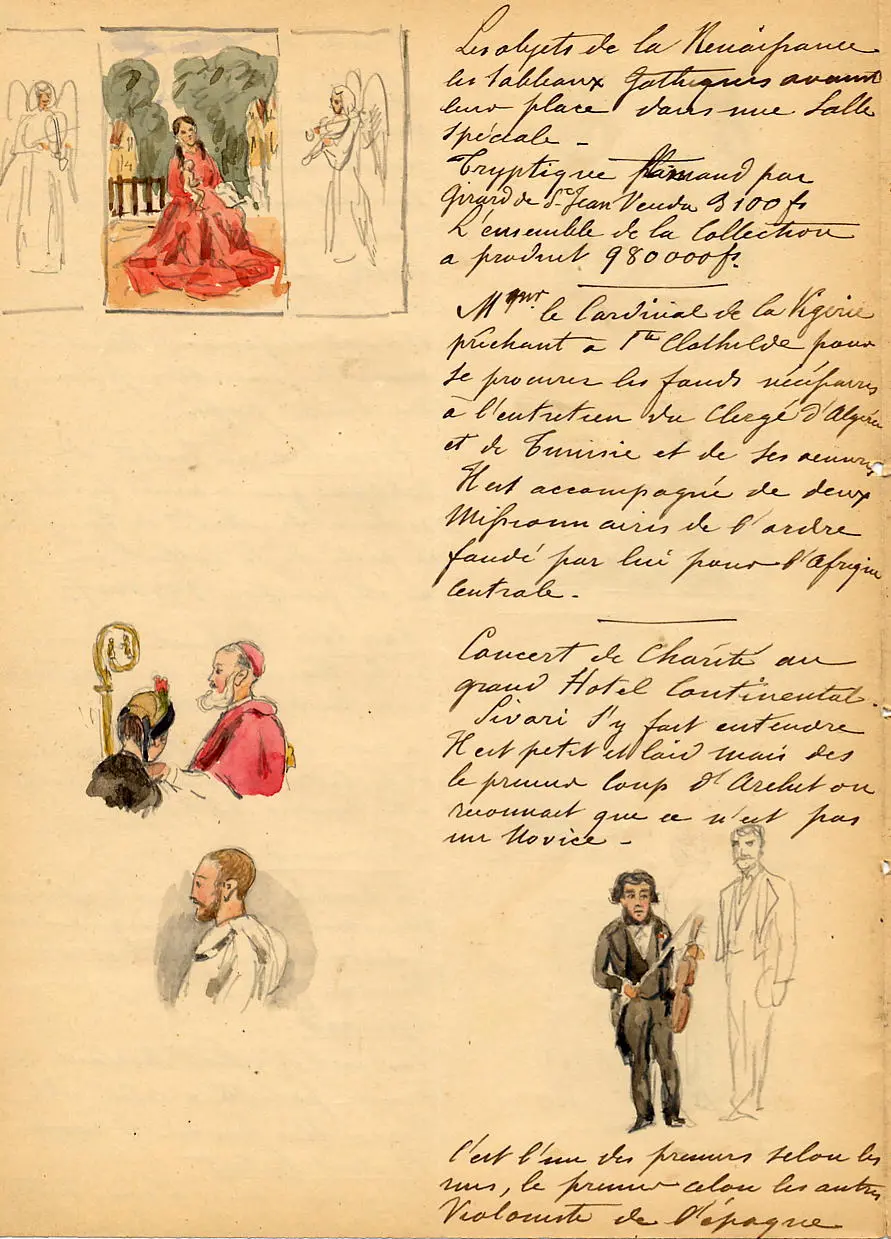 Les objets de la Renaissance
les tableaux Gothiques avaient
leur place dans une Salle
Spéciale -
Tryptique flamand par
Girard de St Jean Vendu 3100fs
L'ensemble de la Collection
a produit 980000fs.
Mgnr le Cardinal de la Vigerie
prêchant a Ste Clothilde pour
se procurer les fonds nécessaires
à l'entretien du Clergé d'Algérie
et de Tunisie et de ses oeuvres
Il est accompagné de deux
Missionnaires de l'ordre
fondé par lui pour l'Afrique
Centrale -
Concert de Charité au
grand Hotel Continental -
Sivori s'y fait entendre
Il est petit et laid mais dès
le premier Coup d'Archet on
reconnait que ce n'est pas
un Novice -
C'est l'un des premiers selon les
uns, le premier celon les autres
Violoniste de l'époque